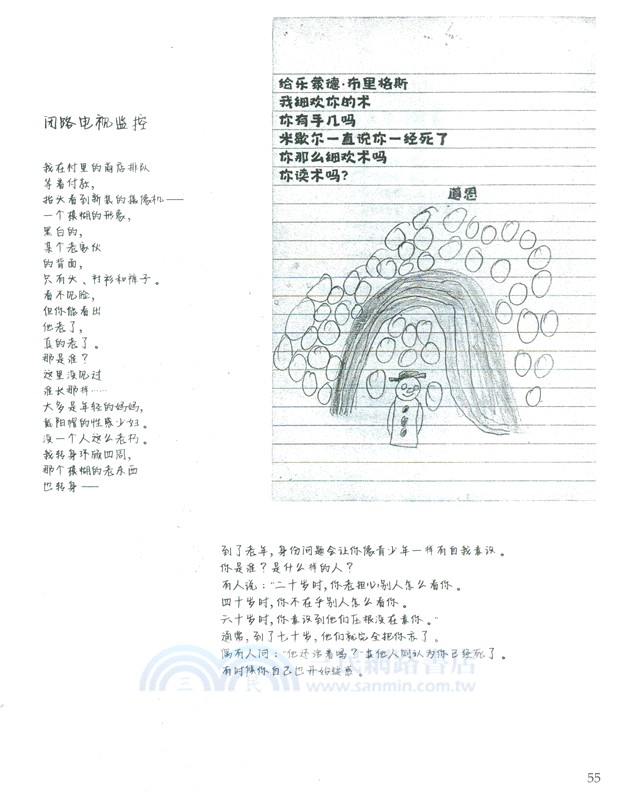 闭路电视监控
我在村里的商店排队
等着付款，
抬头看到新装的摄像机——
一个模糊的形象，
黑白的，
某个老家伙
的背面，
只有头、衬衫和裤子。
看不见脸，
但你能看出
他老了，
真的老了。
那是谁？
这里没见过
谁长那样……
大多是年轻的妈妈，
戴阳帽的性感少妇。
没一个人这么老朽。
我转身环顾四周，
那个模糊的老东西
也转身——
给乐蒙德·布里格斯
我细欢你的术
你有手几吗
米歇尔一直说你一经死了
你那么细欢术吗
你读术吗?
道恩
到了老年，身份问题会让你像青少年一样有自我意识。
你是谁？是什么样的人？
有人说：“二十岁时，你老担心别人怎么看你。
四十岁时，你不在乎别人怎么看你。
六十岁时，你意识到他们压根没在看你。”
通常，到了七十岁，他们就完全把你忘了。
偶有人问：“他还活着吗？”其他人则认为你已经死了。
有时候你自己也开始疑惑。
三民網路書店
www.sanmin.com.tw
55